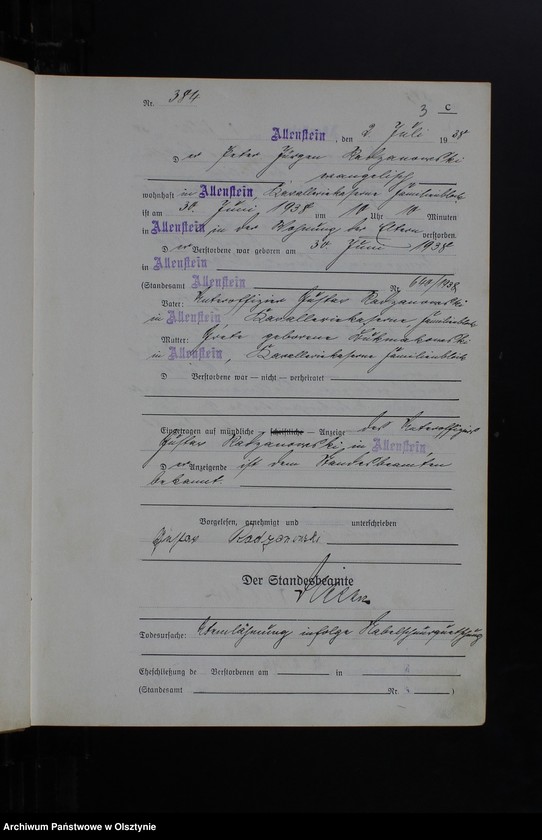 Nr. 384
3 C
Allenstein, den 2. Juli 1938
Der Peter Jürgen Radzanowski
evangelisch
wohnhaft in Allenstein Kavalleriekaserne Familienblock
ist am 30. Juni 1938 um 10 Uhr 10 Minuten
in Allenstein in der Wohnung der Eltern verstorben.
Der Verstorbene war geboren am 30. Juni 1938
in Allenstein
(Standesamt Allenstein Nr. 660/1938
Vater: Unteroffizier Gustav Radzanowski
in Allenstein, Kavalleriekaserne Familienblock
Mutter: Grete geborene
in Allenstein, Kavalleriekaserne Familienblock
D Verstorbene war — nicht — verheiratet
Eingetragen auf mündliche — schriftliche — Anzeige des Unteroffiziers
Gustav Radzanowski in Allenstein
Der Anzeigende ist dem Standesbeamten
bekannt.
Vorgelesen, genehmigt und unterschrieben
Gustav Radzanowski
Der Standesbeamte
Todesursache: Atemlähmung infolge Nabelschnurquetschung
Eheschließung de Verstorbenen am in
(Standesamt Nr. )
Archiwum Państwowe w Olsztynie